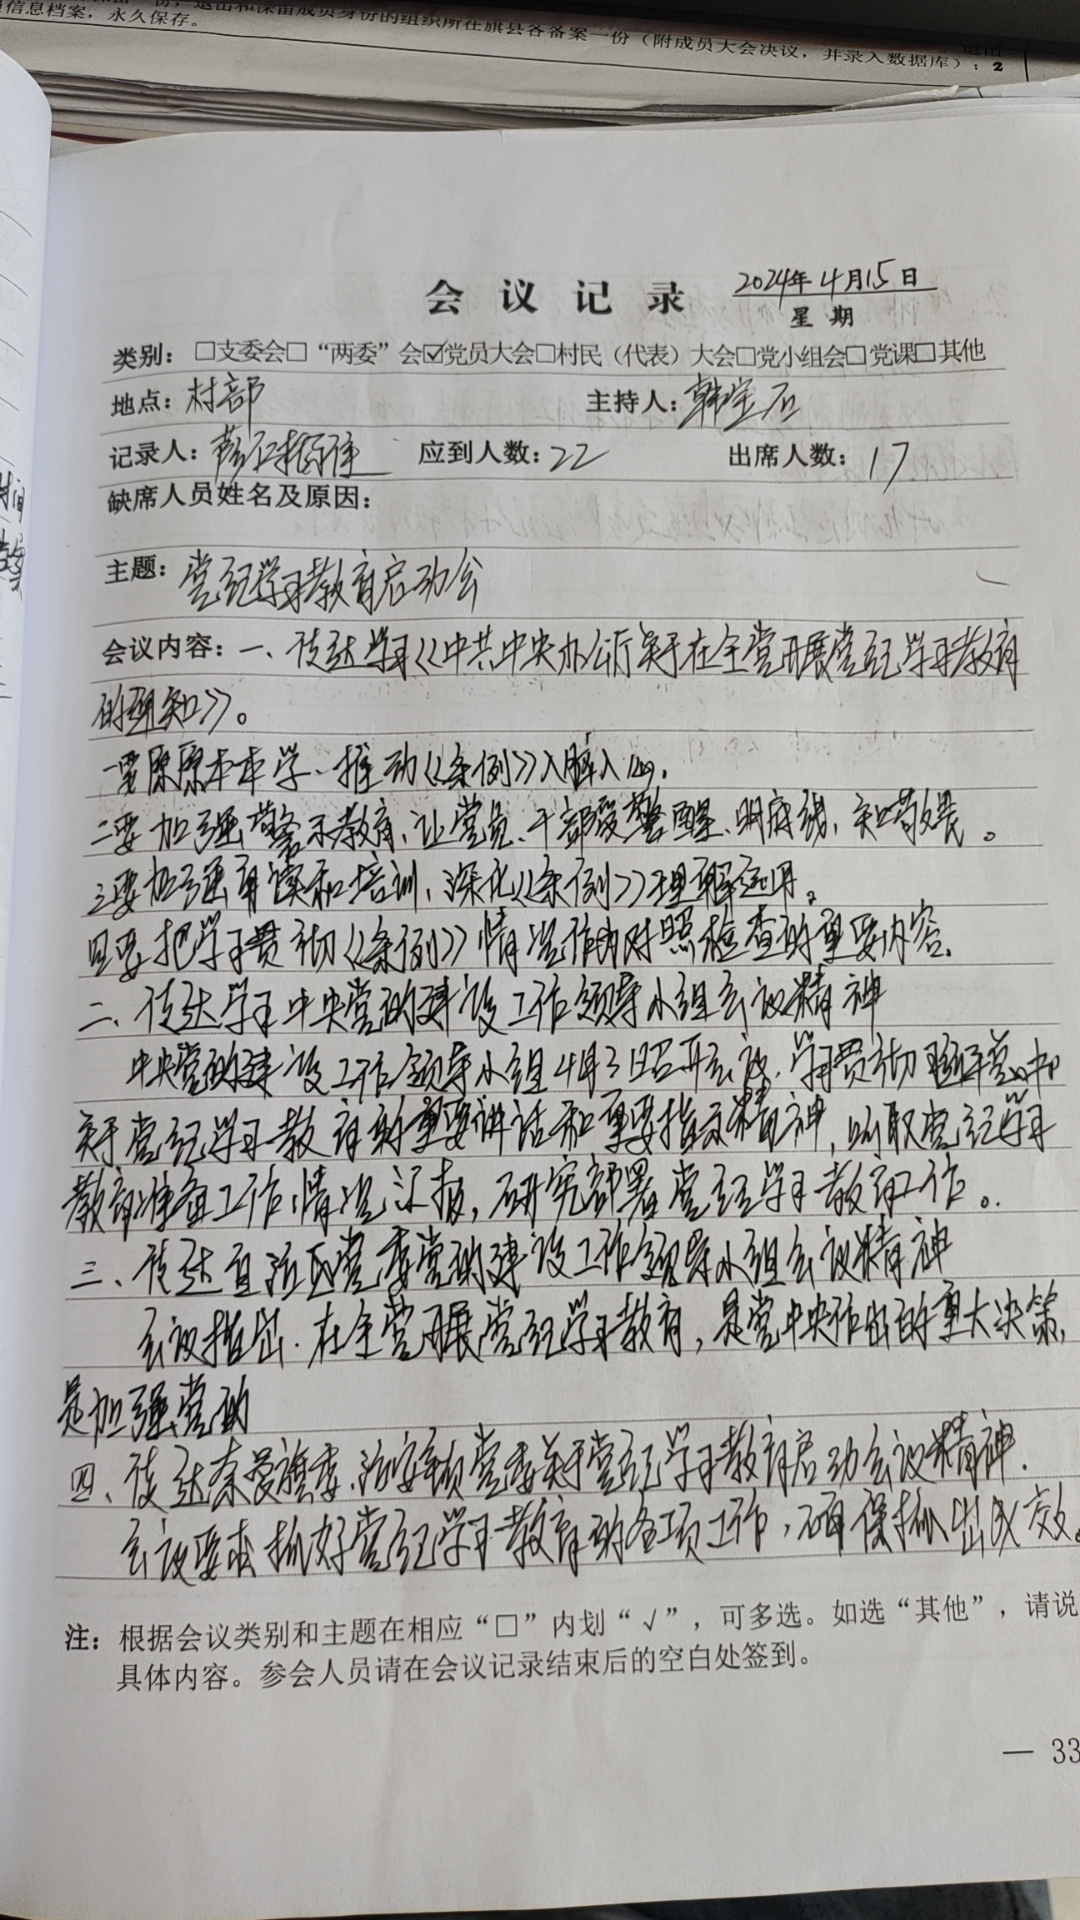 信息档案，永久保存。
份，退出和保留成员身份的组织所在旗县各备案一份（附成员大会决议，并录入数据库）：2
会议记录 2024年4月15日
星期
类别：□支委会□“两委”会☑党员大会□村民（代表）大会□党小组会□党课□其他
地点：村部 主持人：韩宝石
记录人： 应到人数：22 出席人数：17
缺席人员姓名及原因：
主题：党纪学习教育启动会
会议内容：一、传达学习《中共中央办公厅关于在全党开展党纪学习教育
的通知》。
一要原原本本学、推动《条例》入脑入心。
二要加强警示教育，让党员、干部受警醒、明底线、知敬畏。
三要加强解读和培训、深化《条例》理解运用。
四要把学习贯彻《条例》情况作为对照检查的重要内容。
二、传达学习中央党的建设工作领导小组会议精神
中央党的建设工作领导小组4月3日召开会议，学习贯彻习近平总书记
关于党纪学习教育的重要讲话和重要指示精神，听取党纪学习
教育准备工作情况汇报，研究部署党纪学习教育工作。
三、传达自治区党委党的建设工作领导小组会议精神
会议指出，在全党开展党纪学习教育，是党中央作出的重大决策，
是加强党的
四、传达奈曼旗委、治安镇党委关于党纪学习教育启动会议精神.
会议要求抓好党纪学习教育的各项工作，确保抓出成效。
注：根据会议类别和主题在相应“□”内划“√”，可多选。如选“其他”，请说
具体内容。参会人员请在会议记录结束后的空白处签到。
— 33